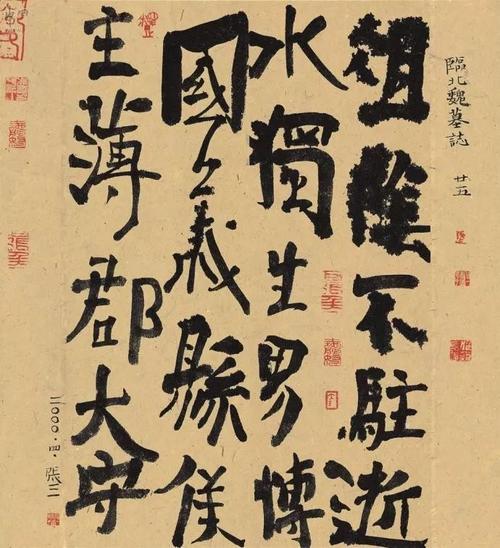 臨北魏墓誌 廿五
徂陰不駐逝
水獨生男博
國義縣侯
主薄郡大守
二〇〇〇.四.張三